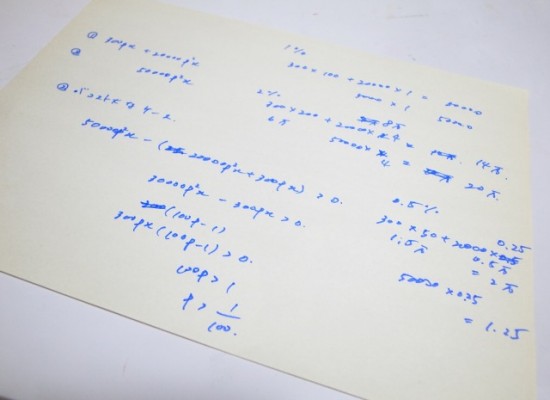 ① 300px + 20000p²x
② 50000p²x
1%
300 × 100 + 20000 × 1 = 50000
50000 × 1 50000
2%
300 × 200 + 20000 × 4 = 14万
6万 8万
50000 × 4 = 20万
50000p²x - (20000p²x + 300px) > 0.
30000p²x - 300px > 0.
(100p-1)
300px (100p-1) > 0.
100p > 1
p > 1/100.
0.5%
300 × 50 + 20000 × 0.25
1.5万 0.5万
= 2万
50000 × 0.25
= 1.25